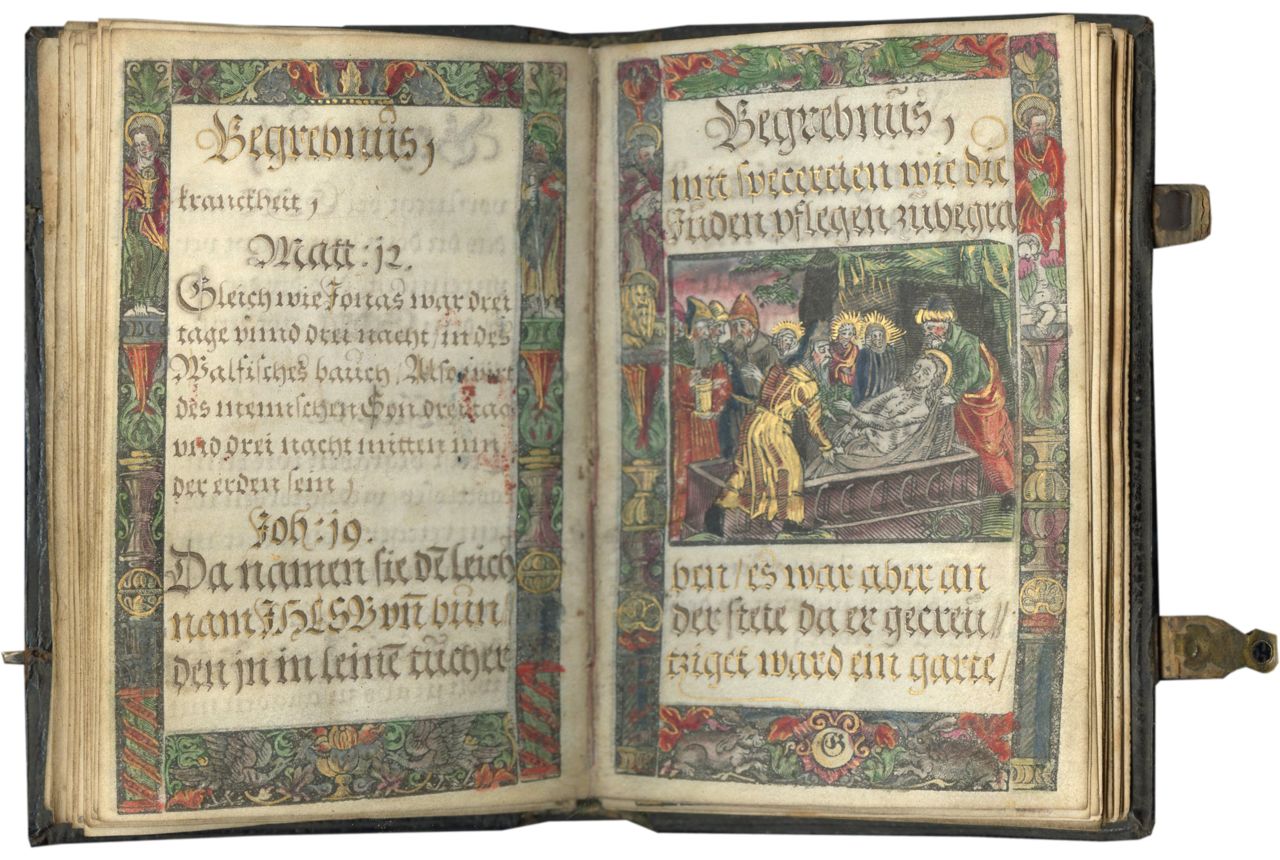 Begrebnüs,
kranckheit,
Matt: 12.
Gleich wie Jonas war drei
tage vnnd drei nacht in des
Walfisches bauch / Also wirt
des mennschen Son drei tag
vnd drei nacht mitten inn
der erden sein,
Joh: 19.
Da namen sie dē leich
nam JHESV vn̄ bün/
den jn in leinē tücher
Begrebnüs,
mit specereien wie die
Jüden pflegen zübegra
ben / es war aber an
der stete da er gecreü//
tziget ward ein garte/
G